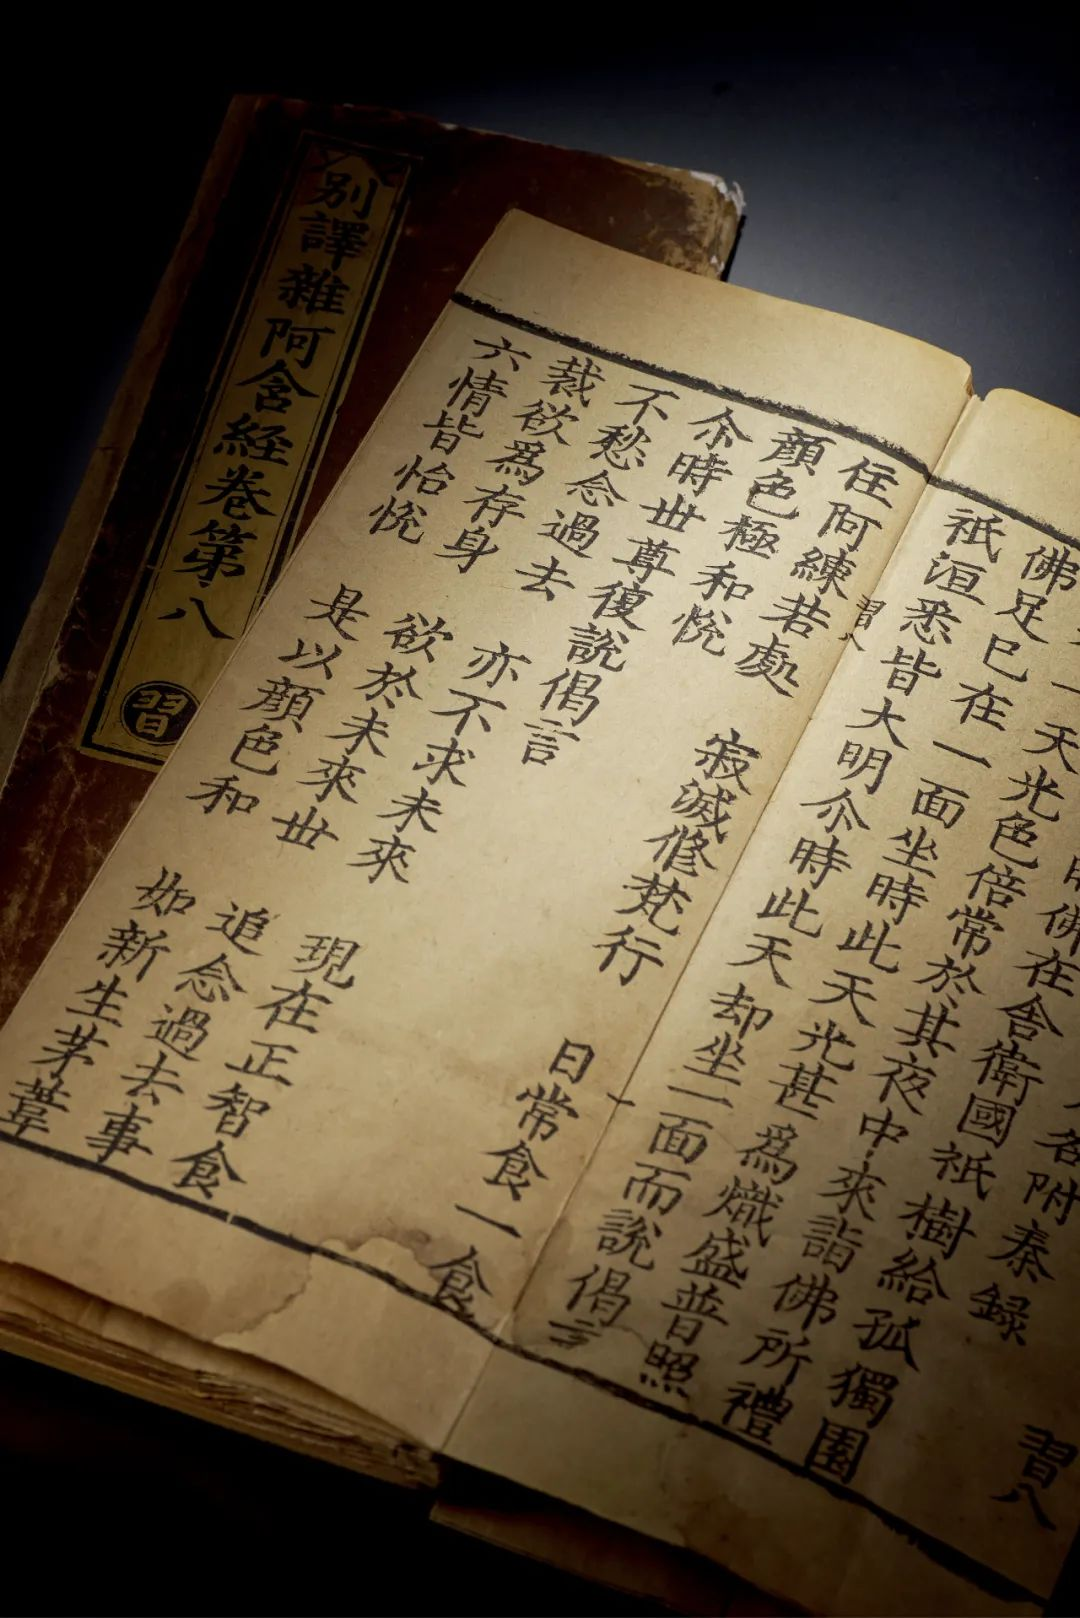 別譯雜阿含經卷第八
習
附秦録
習八
時佛在舍衛國祇樹給孤獨園
一天光色倍常於其夜中來詣佛所禮
佛足已在一面坐時此天光甚爲熾盛普照
祇洹悉皆大明尒時此天却坐一面而說偈言
住阿練若處　寂滅修梵行　日常食一食
顔色極和悅
尒時世尊復說偈言
不愁念過去　亦不求未來　現在正智食
裁欲爲存身　欲於未來世　追念過去事
六情皆怡悅　是以顔色和　如新生茅葦